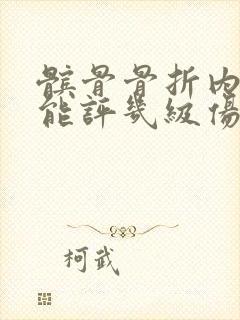 髕骨骨折内
能評幾級傷
柯武